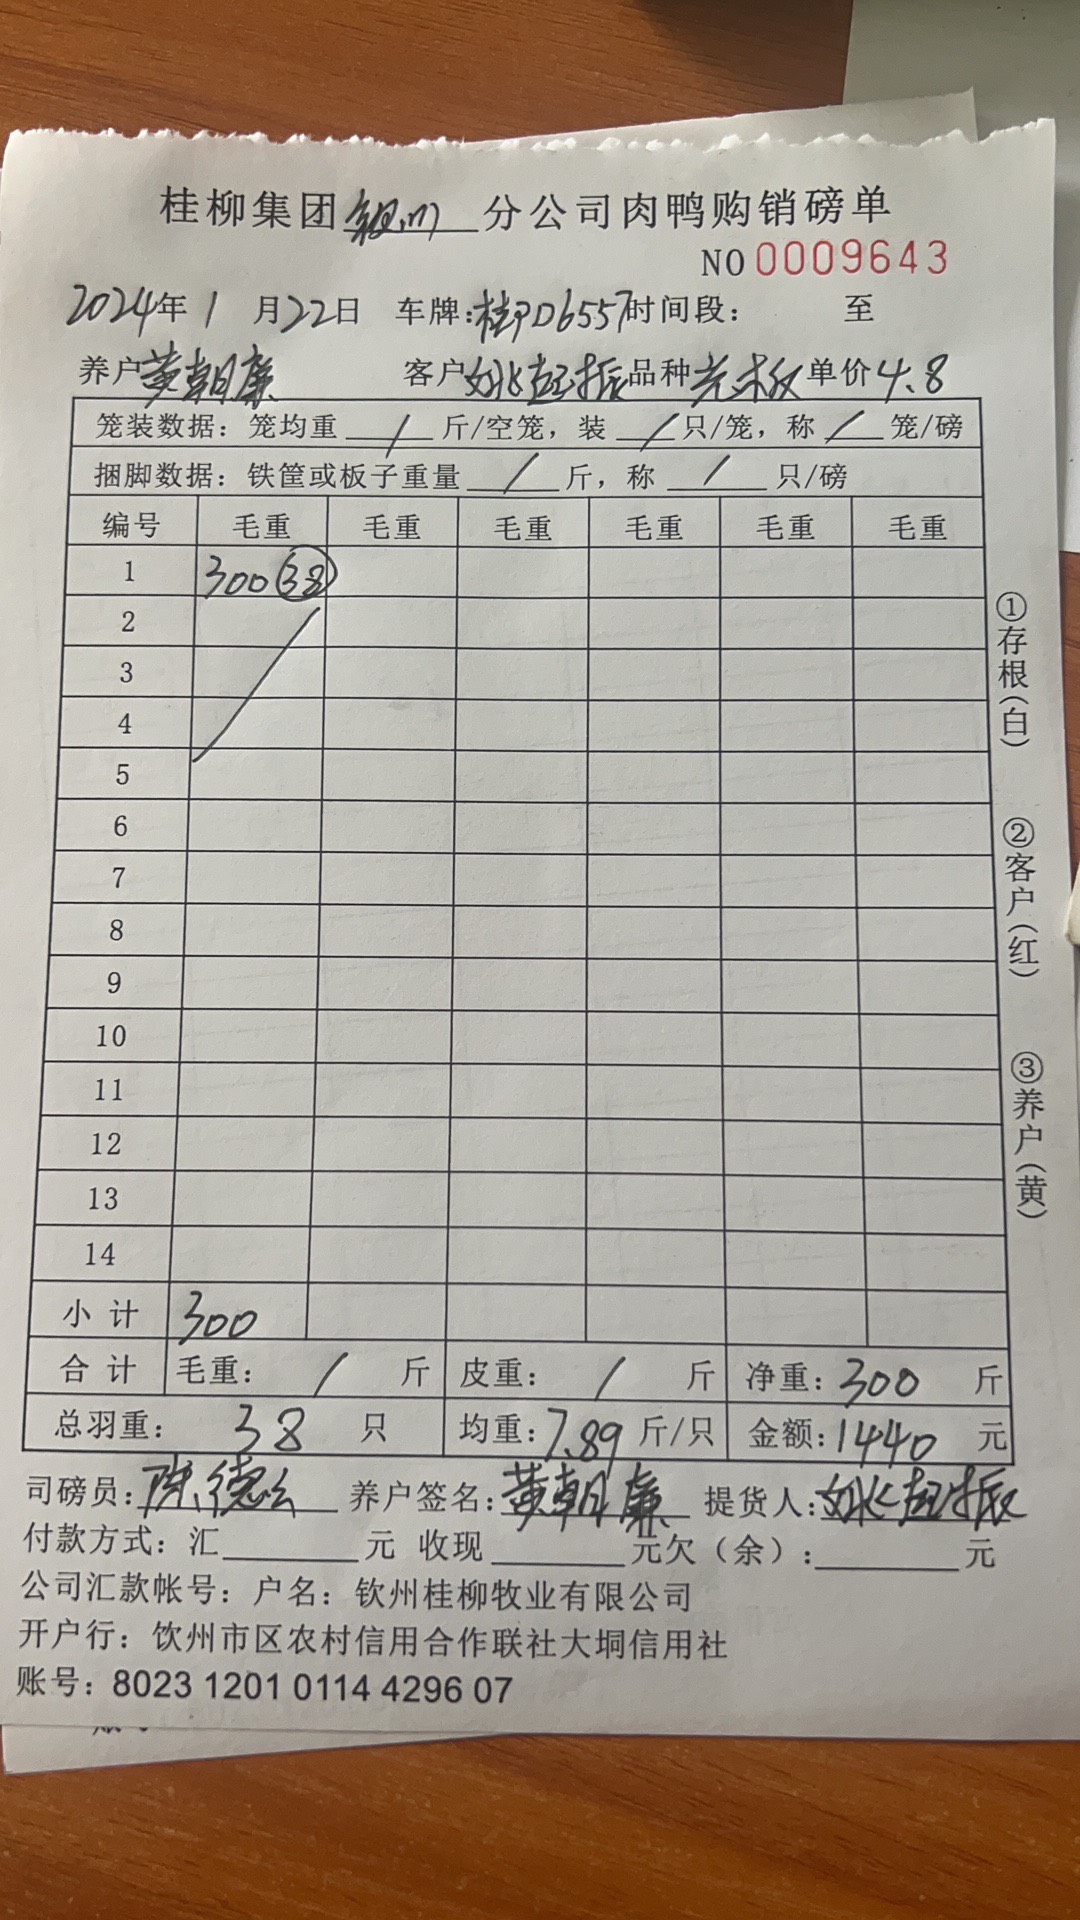 桂柳集团 分公司肉鸭购销磅单
NO 0009643
2024年1月22日 车牌:桂PD6557时间段: 至
养户黄朝廉 客户姚起振品种 单价4.8
笼装数据：笼均重 / 斤/空笼，装 / 只/笼，称 / 笼/磅
捆脚数据：铁筐或板子重量 / 斤，称 / 只/磅
编号 毛重 毛重 毛重 毛重 毛重 毛重
1 300 (38)
2
3
4
5
6
7
8
9
10
11
12
13
14
小计 300
合计 毛重: / 斤 皮重: / 斤 净重: 300 斤
总羽重: 38 只 均重:7.89斤/只 金额:1440 元
司磅员:陈德 养户签名:黄朝廉 提货人:姚起振
付款方式：汇 元 收现 元欠（余）: 元
公司汇款帐号：户名：钦州桂柳牧业有限公司
开户行：饮州市区农村信用合作联社大垌信用社
账号：8023 1201 0114 4296 07
①存根(白)
②客户(红)
③养户(黄)